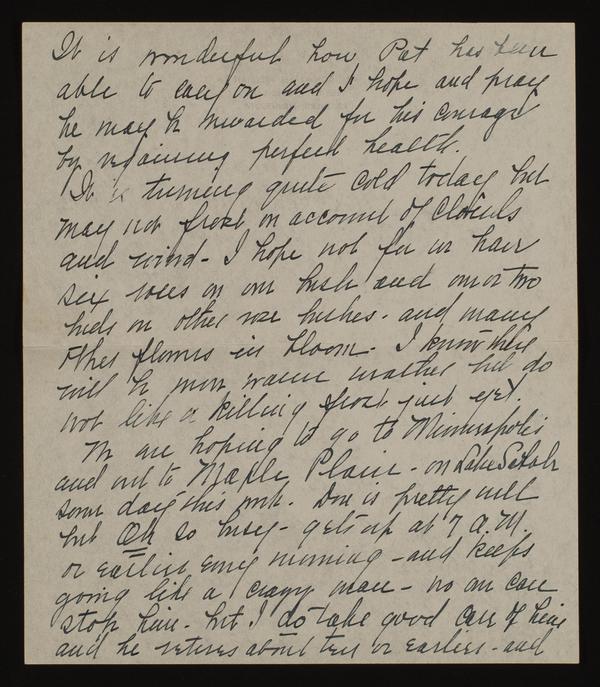 It is wonderful how Pat has been
able to carry on and I hope and pray
he may be rewarded for his courage
by regaining perfect health.
It is turning quite cold today but
may not frost on account of clouds
and wind - I hope not for we have
six roses on one bush and one or two
buds on other rose bushes - and many
other flowers in bloom - I know there
will be more warm weather but do
not like a killing frost just yet.
We are hoping to go to Minneapolis
and out to Maple Plain - on Lake
some day this week. Doc is pretty well
but Oh so busy - gets up at 7 A.M.
or earlier every morning - and keeps
going like a crazy man - no one can
stop him - but I do take good care of him
and he retires about ten or earlier - and